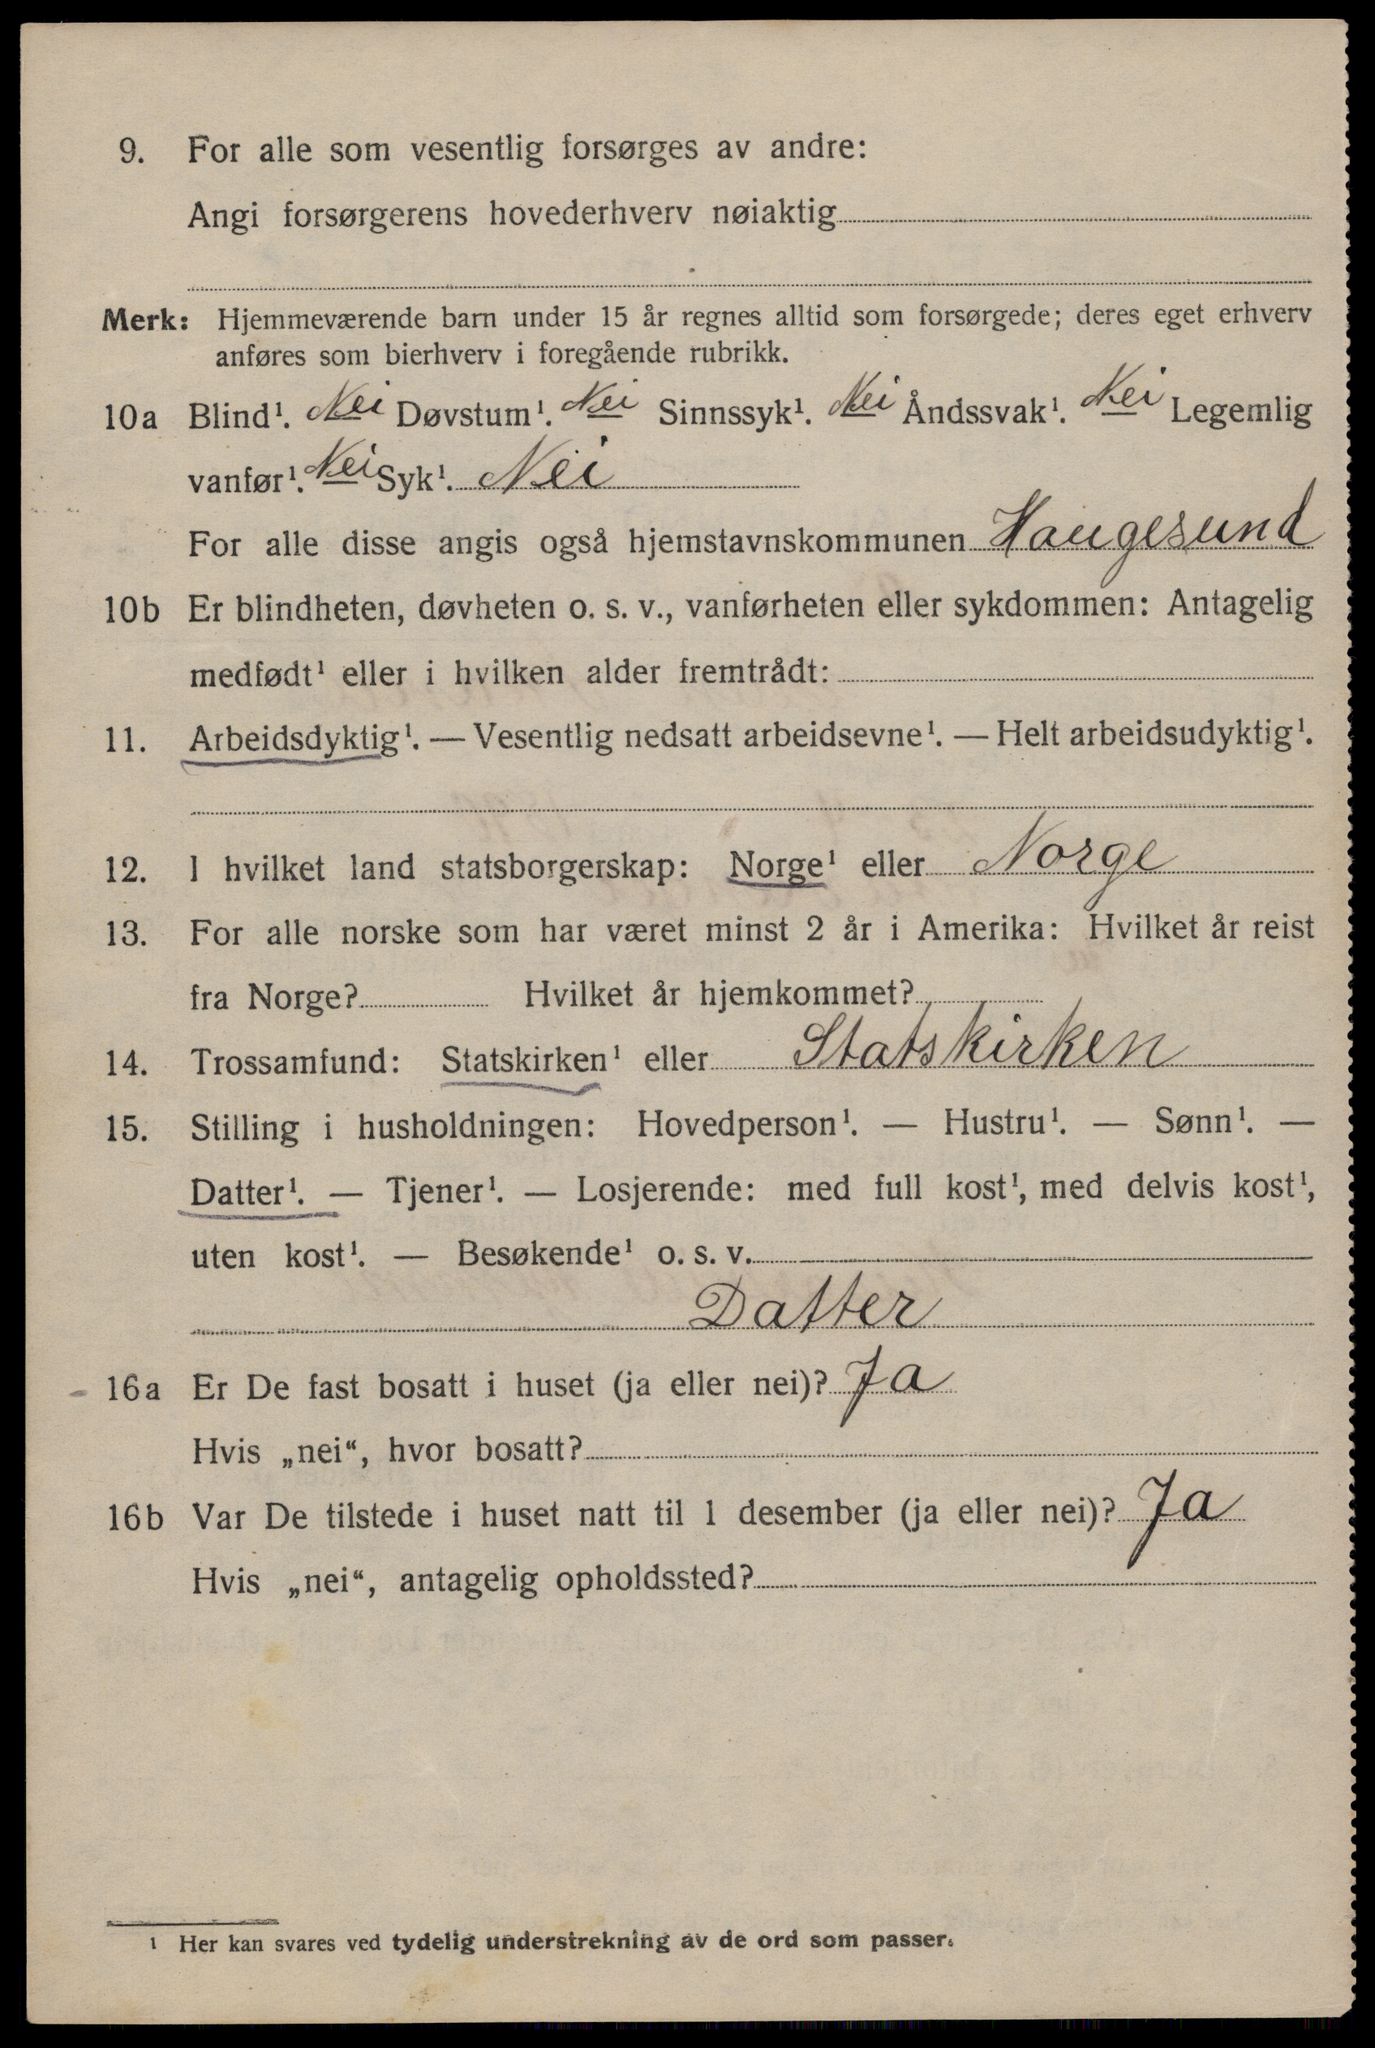 9. For alle som vesentlig forsørges av andre:
Angi forsørgerens hovederhverv nøiaktig
Merk: Hjemmeværende barn under 15 år regnes alltid som forsørgede; deres eget erhverv
anføres som bierhverv i foregående rubrikk.
10a Blind¹. Nei Døvstum¹. Nei Sinnssyk¹. Nei Åndssvak¹. Nei Legemlig
vanfør¹. Nei Syk¹. Nei
For alle disse angis også hjemstavnskommunen Haugesund
10b Er blindheten, døvheten o. s. v., vanførheten eller sykdommen: Antagelig
medfødt¹ eller i hvilken alder fremtrådt:
11. Arbeidsdyktig¹. — Vesentlig nedsatt arbeidsevne¹. — Helt arbeidsudyktig¹.
12. I hvilket land statsborgerskap: Norge¹ eller Norge
13. For alle norske som har været minst 2 år i Amerika: Hvilket år reist
fra Norge? Hvilket år hjemkommet?
14. Trossamfund: Statskirken¹ eller Statskirken
15. Stilling i husholdningen: Hovedperson¹. — Hustru¹. — Sønn¹. —
Datter¹. — Tjener¹. — Losjerende: med full kost¹, med delvis kost¹,
uten kost¹. — Besøkende¹ o. s. v.
Datter
16a Er De fast bosatt i huset (ja eller nei)? Ja
Hvis „nei“, hvor bosatt?
16b Var De tilstede i huset natt til 1 desember (ja eller nei)? Ja
Hvis „nei“, antagelig opholdssted?
¹ Her kan svares ved tydelig understrekning av de ord som passer.